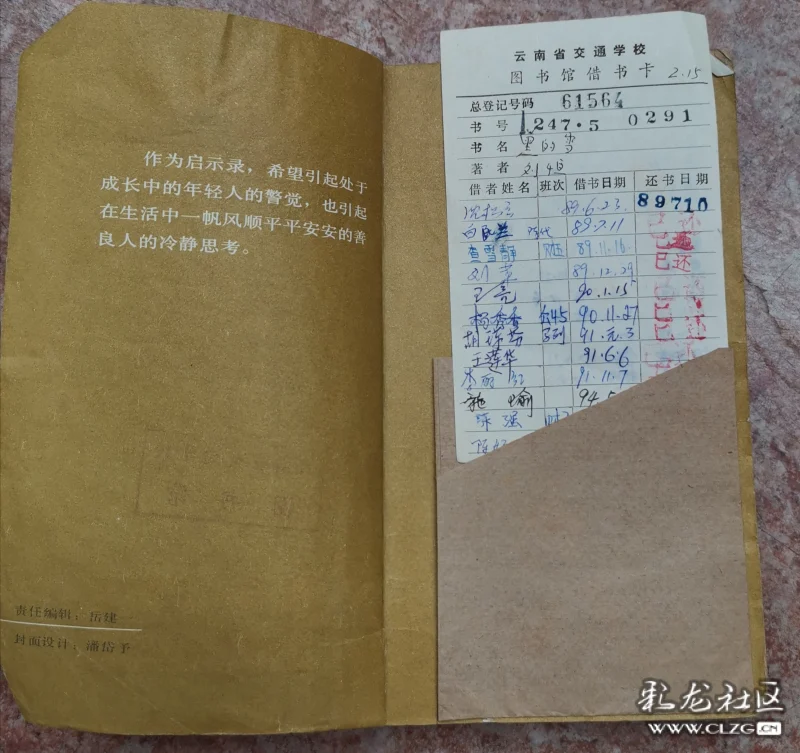 作为启示录，希望引起处于
成长中的年轻人的警觉，也引起
在生活中一帆风顺平平安安的善
良人的冷静思考。
责任编辑：岳建一
封面设计：潘岱予
云南省交通学校
图书馆借书卡 2.15
总登记号码 61564
书号 I.247·5 0291
书名 黑的雪
著者 刘恒
借者姓名 班次 借书日期 还书日期
89.6.23. 89710
89.7.11 已还
查雪静 89.11.16 已还
89.12.29
王亮 90.1.15
杨秀香 90.11.27 已
91.元.3 已还
王萍华 91.6.6
91.11.7
94.5
张强
彩龙社区
WWW.CLZG.CN